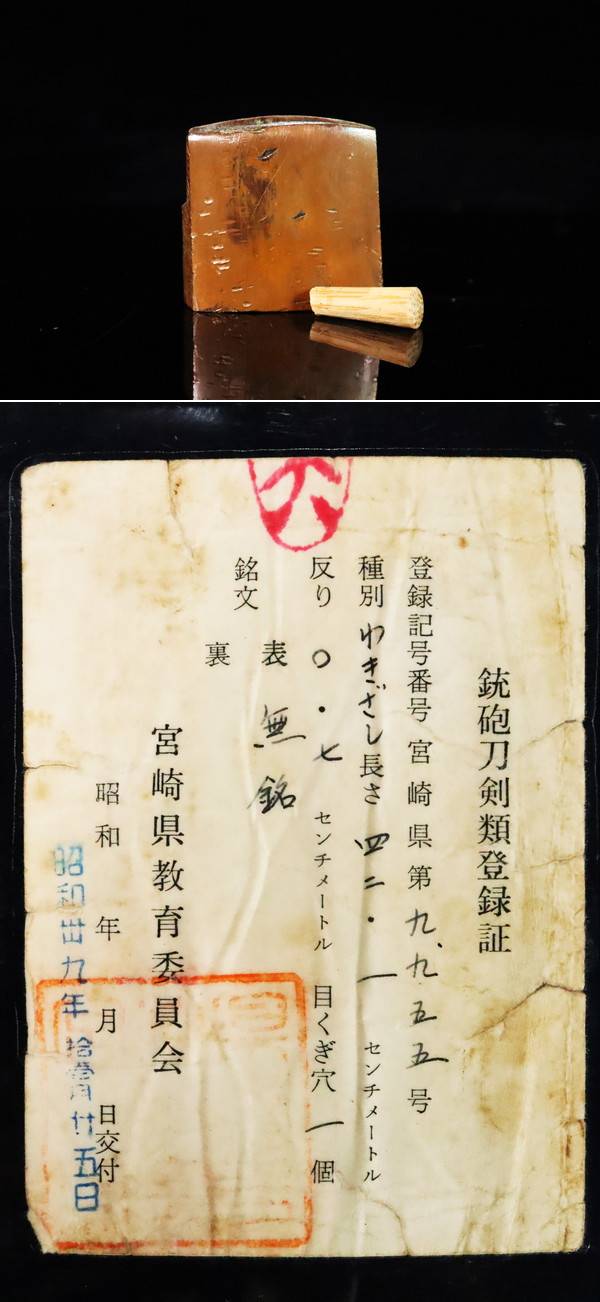 銃砲刀剣類登録証
登録記号番号 宮崎県第九、九五五号
種別 わきざし 長さ 四二・一 センチメートル
反り 〇・七 センチメートル 目くぎ穴 一個
銘文 表 無銘
裏
宮崎県教育委員会
昭和 年 月 日交付
昭和卅九年拾壹月廿五日